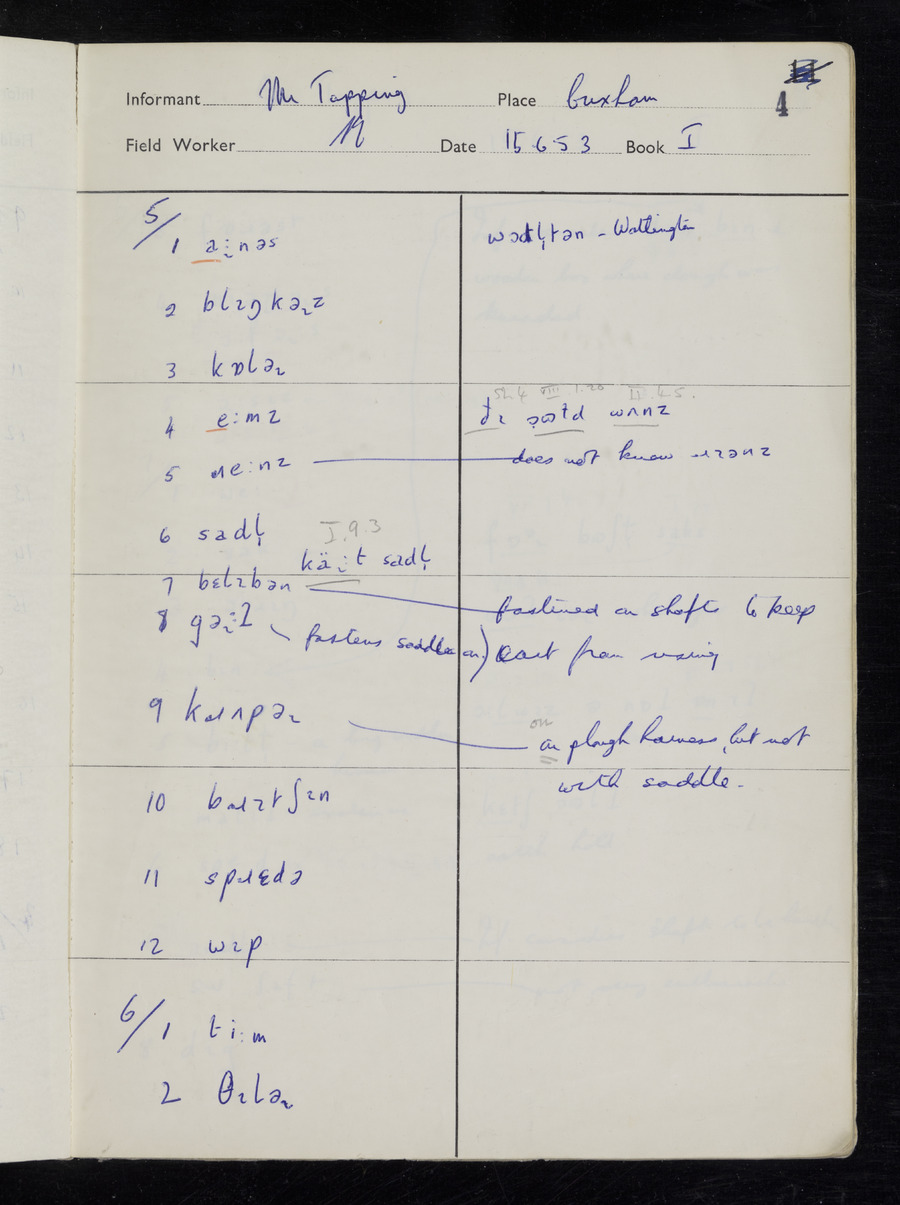 Informant Mr Tapping Place Cuxham
4
Field Worker N Date 15.6.53 Book I
5/
1 a˞ːnəs wɒtl̩tən - Watlington
2 blɪŋkə˞z
3 kɒlə˞
Sh.4 VIII.1.20 II.4.5.
4 eːmz wʌnz
5 ɹeːnz does not know ɹɪənz
6 sadl̩ I.9.3
kä˞ːt sadl̩
7 bɛlɪbən fastened on shafts to keep
8 gə˞ːɫ fastens saddle on) cart from rising
9 kɹʌpə˞ on
on plough harness, but not
with saddle.
10 bɹɪtʃɪn
11 spɹɛdə
12 wɪp
6/
1 tiːm
2 θɪlə˞